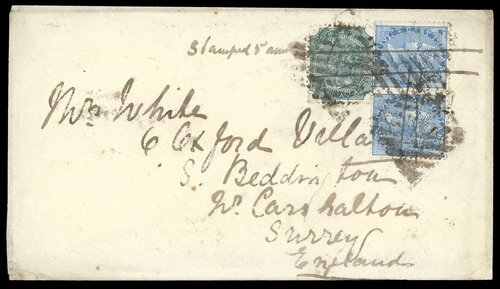 Stamped 5 ann
Mrs White
6 Oxford Villa
S. Beddington
Nr. Carshalton
Surrey
England